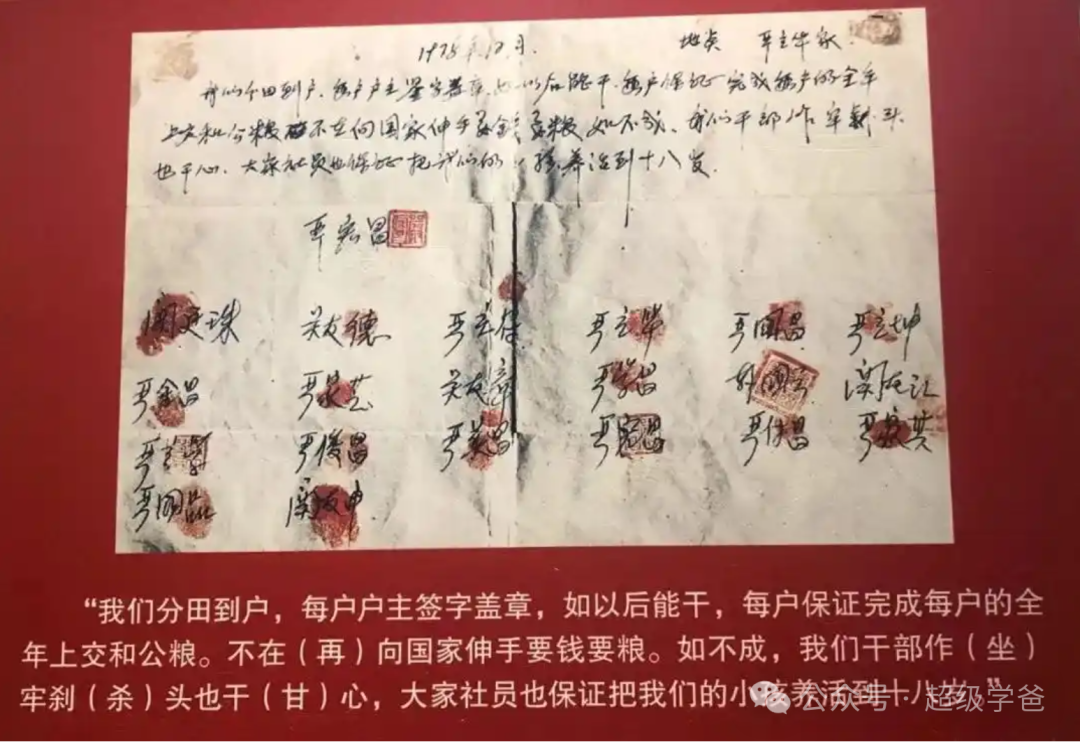 1978年12月. 地点 严立华家
我们分田到户,每户户主签字盖章,如以后能干,每户保证完成每户的全年
上交和公粮 不在向国家伸手要钱要粮,如不成,我们干部作牢刹头
也干心,大家社员也保证把我们的小孩养活到十八岁.
严宏昌
关廷珠 关友德 严立符 严立华 严国昌 严立坤
严金昌 严家芝 关友章 严学昌 韩国云 关友江
严立学 严俊昌 严美昌 严宏昌 严付昌 严家其
严国品 关友申
“我们分田到户,每户户主签字盖章,如以后能干,每户保证完成每户的全
年上交和公粮。不在(再)向国家伸手要钱要粮。如不成,我们干部作(坐)
牢刹(杀)头也干(甘)心,大家社员也保证把我们的小孩养活到十八岁。”
公众号 超级学爸